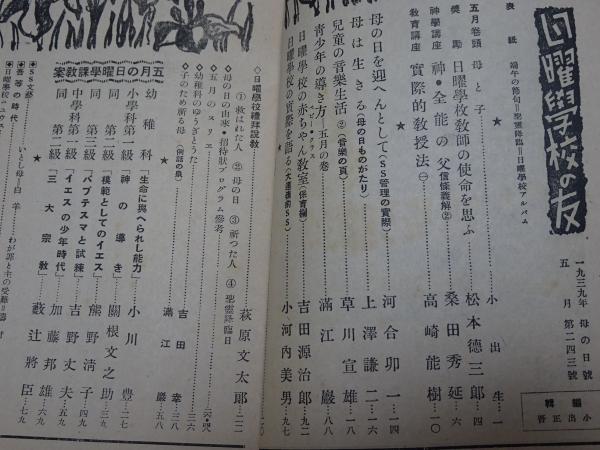 日曜學校の友
一九三九年 母の日號
五月 第二四三號
編輯
小出正吾
表紙 端午の節句=聖靈降臨=日曜學校アルバム
五月卷頭 母と子 小出生…一
奬勵 日曜學校教師の使命を思ふ 松本德三郎…四
神學講座 神・全能の父(信條義解②) 桑田秀延…六
教育講座 實際的教授法(一) 高崎能樹…一〇
★
母の日を迎へんとして(SS管理の實際) 河合卯一…一四
母は生きる(母の日ものがたり) 上澤謙二…一六
兒童の音樂生活②(音樂の頁) 草川宣雄…一八
青少年の導き方・五月の卷 滿江巖…八八
日曜學校の赤ちやん教室(保育欄) 吉田源治郎…九二
日曜學校の實際を語る(大連機前SS) 小河内美男…九七
★
◇日曜學校禮拜說教 萩原文太郎…二二
①救はれた人 ②母の日 ③祈つた人 ④聖靈降臨日
◇母の日の由來・招待狀プログラム參考…二〇
◇五月のスリエ
◇幼稚科のゆうぎとうた…二六
◇子のため祈る母(例話の泉) 吉田幸…三八
滿江巖…五八
五月の日曜學課教案
幼稚科「生命に與へられし能力」 小川豊…二七
小學科第一級「神の導き」 關根文之助…三九
同 第三級「模範としてのイエス」 熊野清子…四九
中學科第一級「バプテスマと試練」 吉野丈夫…五九
同 第二級「イエスの少年時代」 加藤邦雄…六九
同 第三級「三大宗教」 藪辻將臣…七九
★
◆SS文藝
いとし母=白羊 わが罪と主の受難=壽
◆吾等の時代
◆日曜學校ニユウス